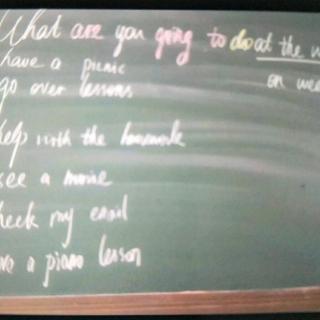 What are you going to do at the w
have a picnic
on wee
go over lessons
help with the housework
see a movie
heck my email
ve a piano lesson